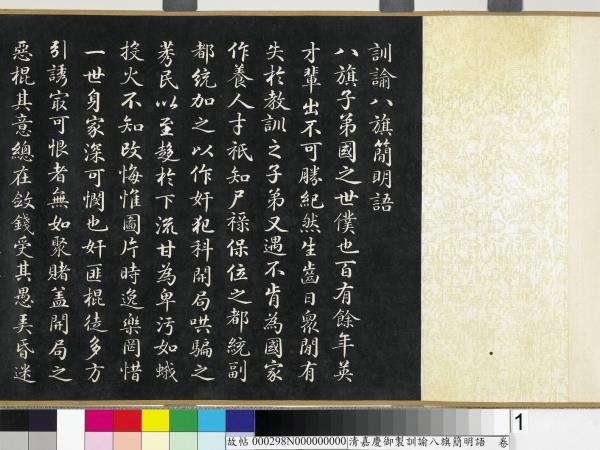 訓諭八旗簡明語
八旗子弟國之世僕也百有餘年英
才輩出不可勝紀然生齒日衆閒有
失於教訓之子弟又遇不肯為國家
作養人才祇知尸祿保位之都統副
都統加之以作奸犯科開局哄騙之
莠民以至趍於下流甘為卑污如蛾
投火不知改悔惟圖片時逸樂罔惜
一世身家深可憫也奸匪棍徒多方
引誘冣可恨者無如聚賭盖開局之
惡棍其意總在斂錢受其愚弄昏迷
1
故帖 000298N000000000 清嘉慶御製訓諭八旗簡明語 卷